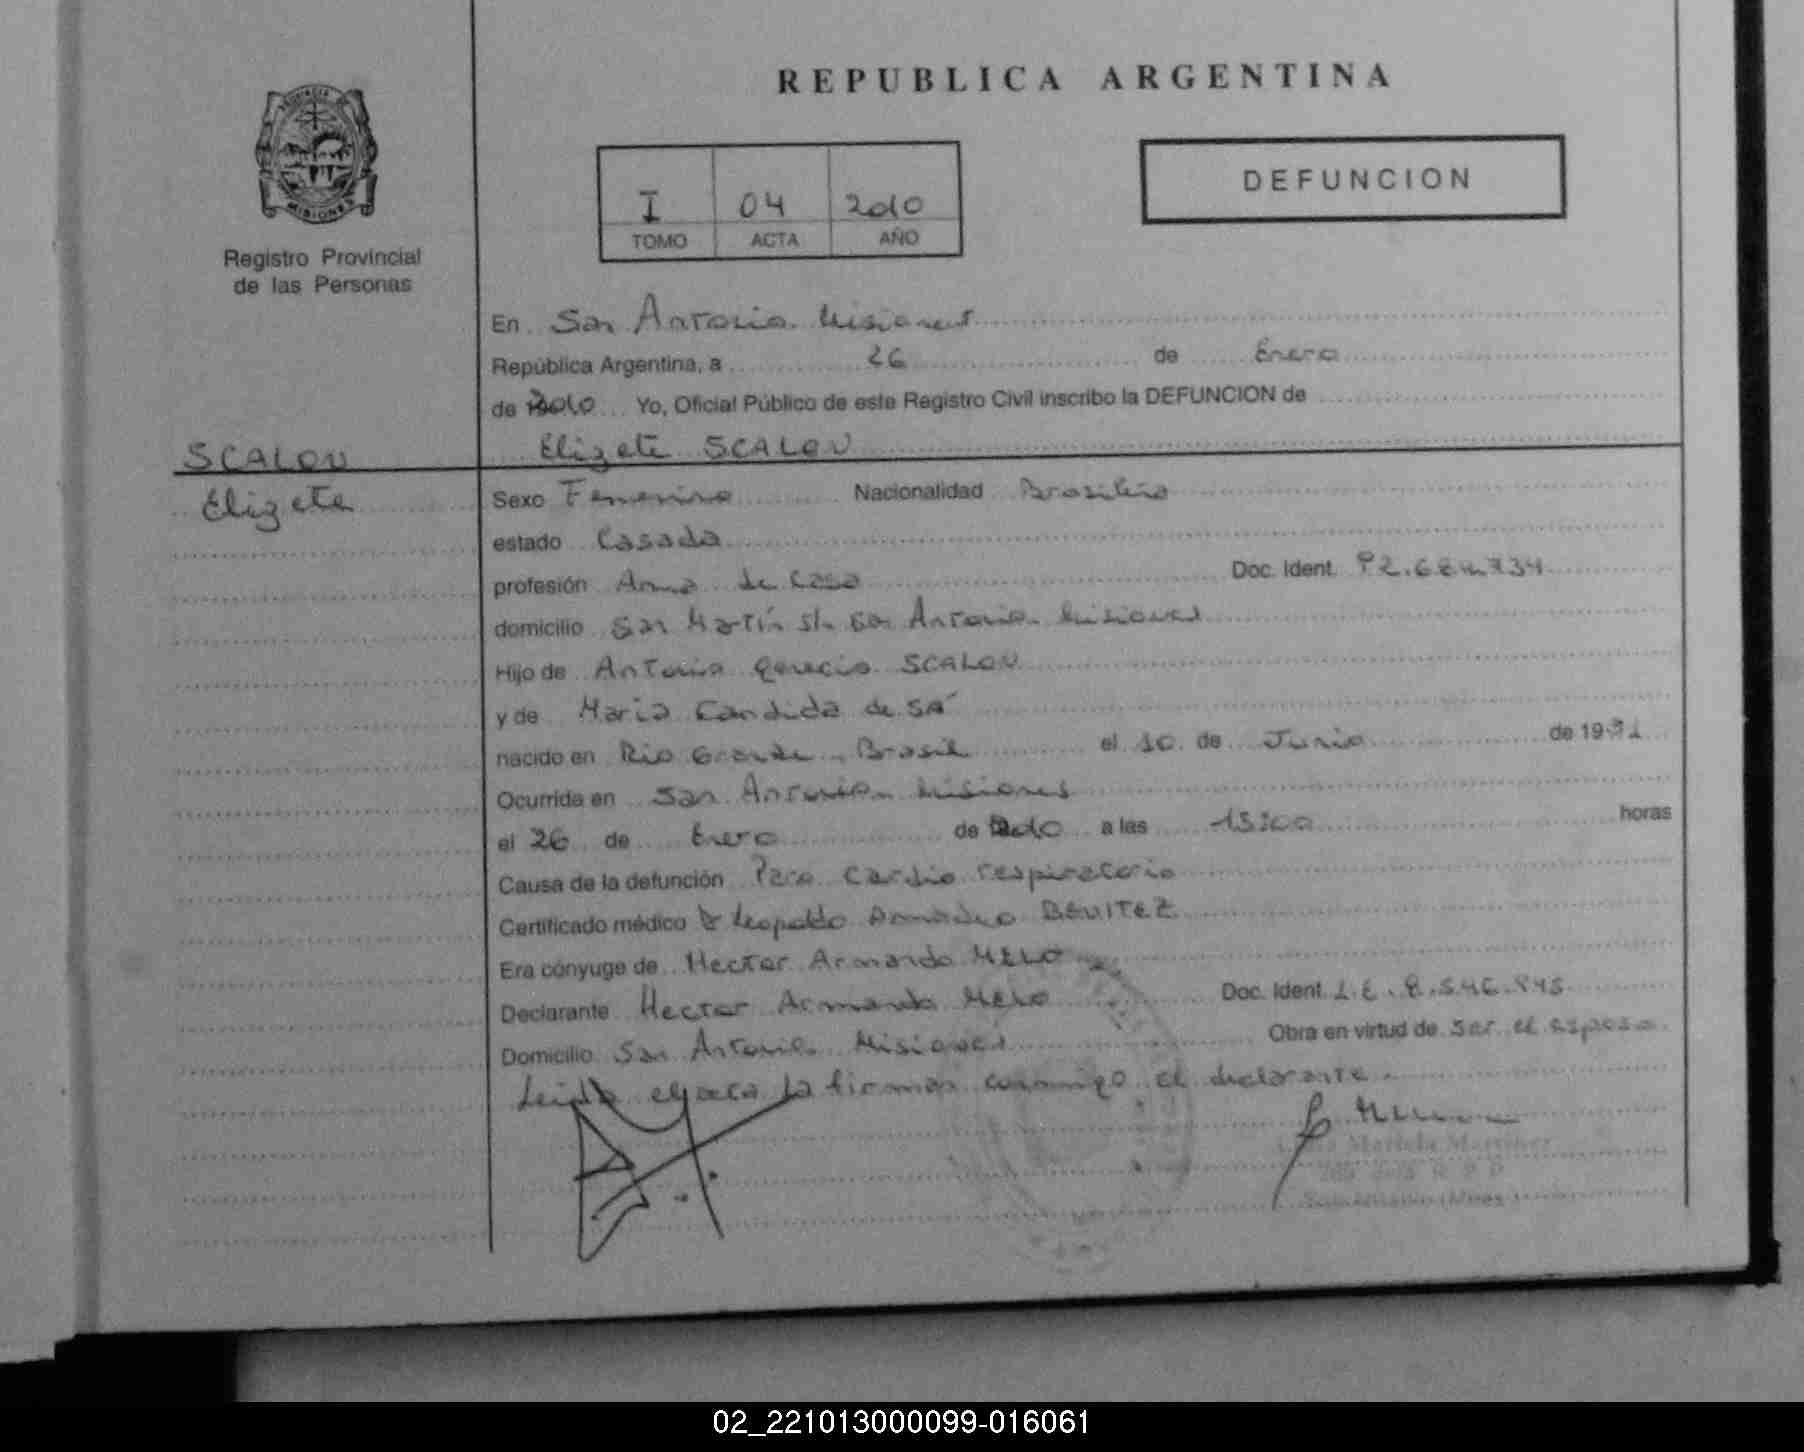 REPUBLICA ARGENTINA
PROVINCIA DE
MISIONES
Registro Provincial
de las Personas
I 04 2010
TOMO ACTA AÑO
DEFUNCION
En San Antonio Misiones
República Argentina, a 26 de Enero
de 2010 Yo, Oficial Público de este Registro Civil inscribo la DEFUNCION de
Elizete SCALON
SCALON
Elizete
Sexo Femenino Nacionalidad Brasileña
estado Casada
profesión Ama de Casa Doc. Ident.
domicilio San Martín s/n San Antonio Misiones
Hijo de Antonio SCALON
y de Maria Candida de SÁ
nacido en Rio Grande Brasil el 10 de Junio de 19
Ocurrida en San Antonio Misiones
el 26 de Enero de 2010 a las 15:00 horas
Causa de la defunción Paro Cardio respiratorio
Certificado médico Dr Leopoldo Amadeo BENITEZ
Era cónyuge de Hector Armando MELO
Declarante Hector Armando MELO Doc. Ident. L.E. 8.546.845
Domicilio San Antonio Misiones Obra en virtud de ser el esposo
Leida el acta la firman conmigo el declarante
Mariela Martinez
02_221013000099-016061